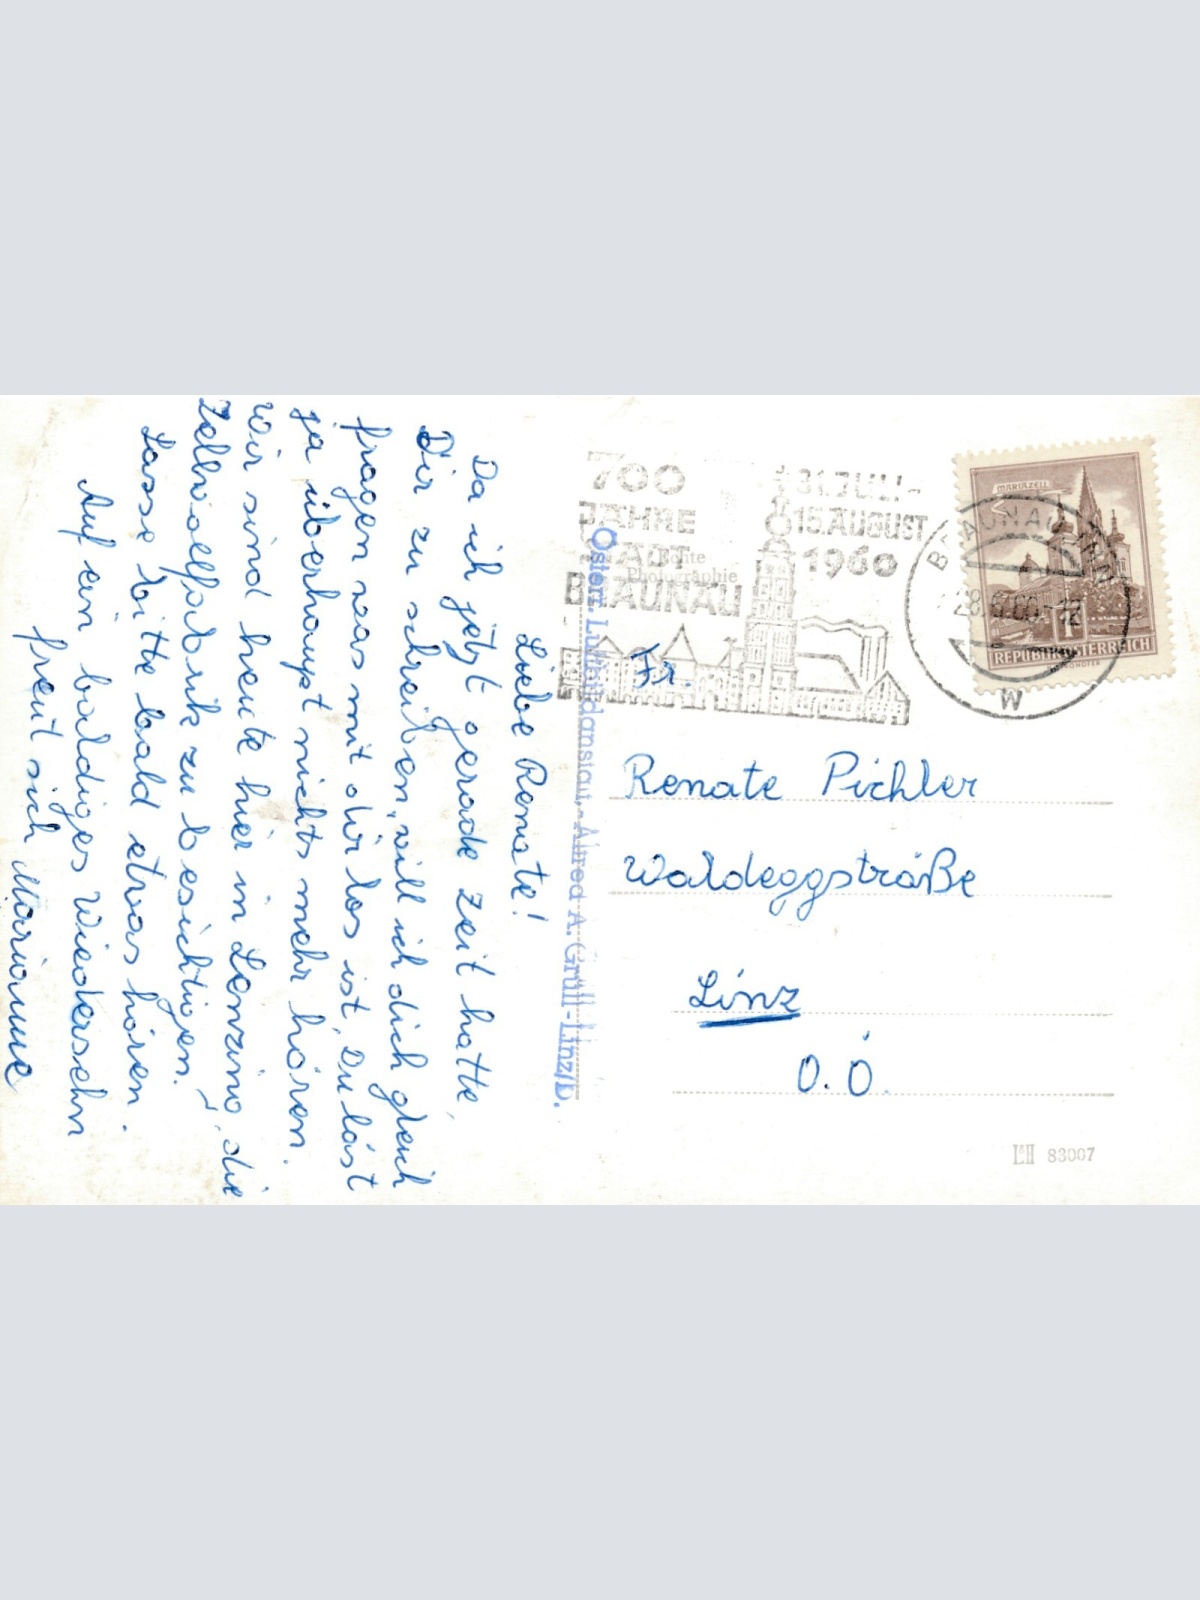 Liebe Renate!
Da ich jetzt gerade Zeit hatte,
Dir zu schreiben, will ich dich gleich
fragen was mit dir los ist, Du läst
ja überhaupt nichts mehr hören.
Wir sind heute hier in Lenzing, die
Zellwollfabrik zu besichtigen.
Lasse bitte bald etwas hören.
Auf ein baldiges Wiedersehn
freut sich Marianne
Österr. Luftbildanstalt, Alfred A. Grüll-Linz/D.
Echte
Photographie
700
JAHRE
STADT
BRAUNAU
31. JULI -
15. AUGUST
1960
BRAUNAU
W
MARIAZELL
1
REPUBLIK ÖSTERREICH
Fr.
Renate Pichler
Waldeggstraße
Linz
O.Ö.
83007